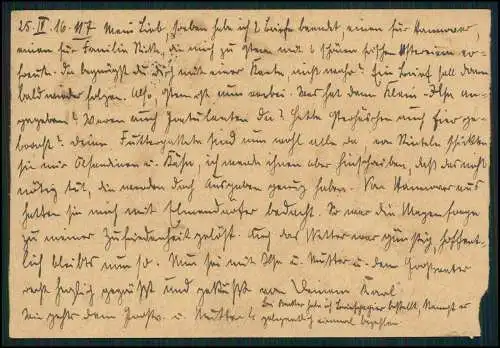 25. IV. 16. 117 Mein Lieb, soeben habe ich 2 Briefe beendet, einen für Hannover,
einen für Familie die mich zu Ostern mit 6 schönen frischen Ostereiern er-
freute. Du begnügst Du dich mit einer Karte, nicht wahr? Ein Brief soll dann
bald wieder folgen. Also, Ostern ist nun vorbei. Was hat denn Klein-Ilse an-
gegeben? Waren auch Gratulanten da? Hatte Osterhäschen auch Eier ge-
bracht? Deine sind nun wohl alle da, von schickten
sie mir Ölsardinen u. Käse, ich werde ihnen aber hinschreiben, daß das nicht
nötig tut, die werden doch Ausgaben genug haben. Von Hannover aus
hatten sie mich mit bedacht. So war die Magenfrage
zu meiner Zufriedenheit gelöst. Auch das Wetter war günstig, hoffent-
lich bleibts nun so. Nun sei mit Ilse u. Mutter u. dem Großvater
recht herzlich gegrüßt und geküßt von Deinem Karl
Wie gehts dem u. Mutter?
Bei habe ich Briefpapier bestellt, kannst es
gelegentlich einmal bezahlen.